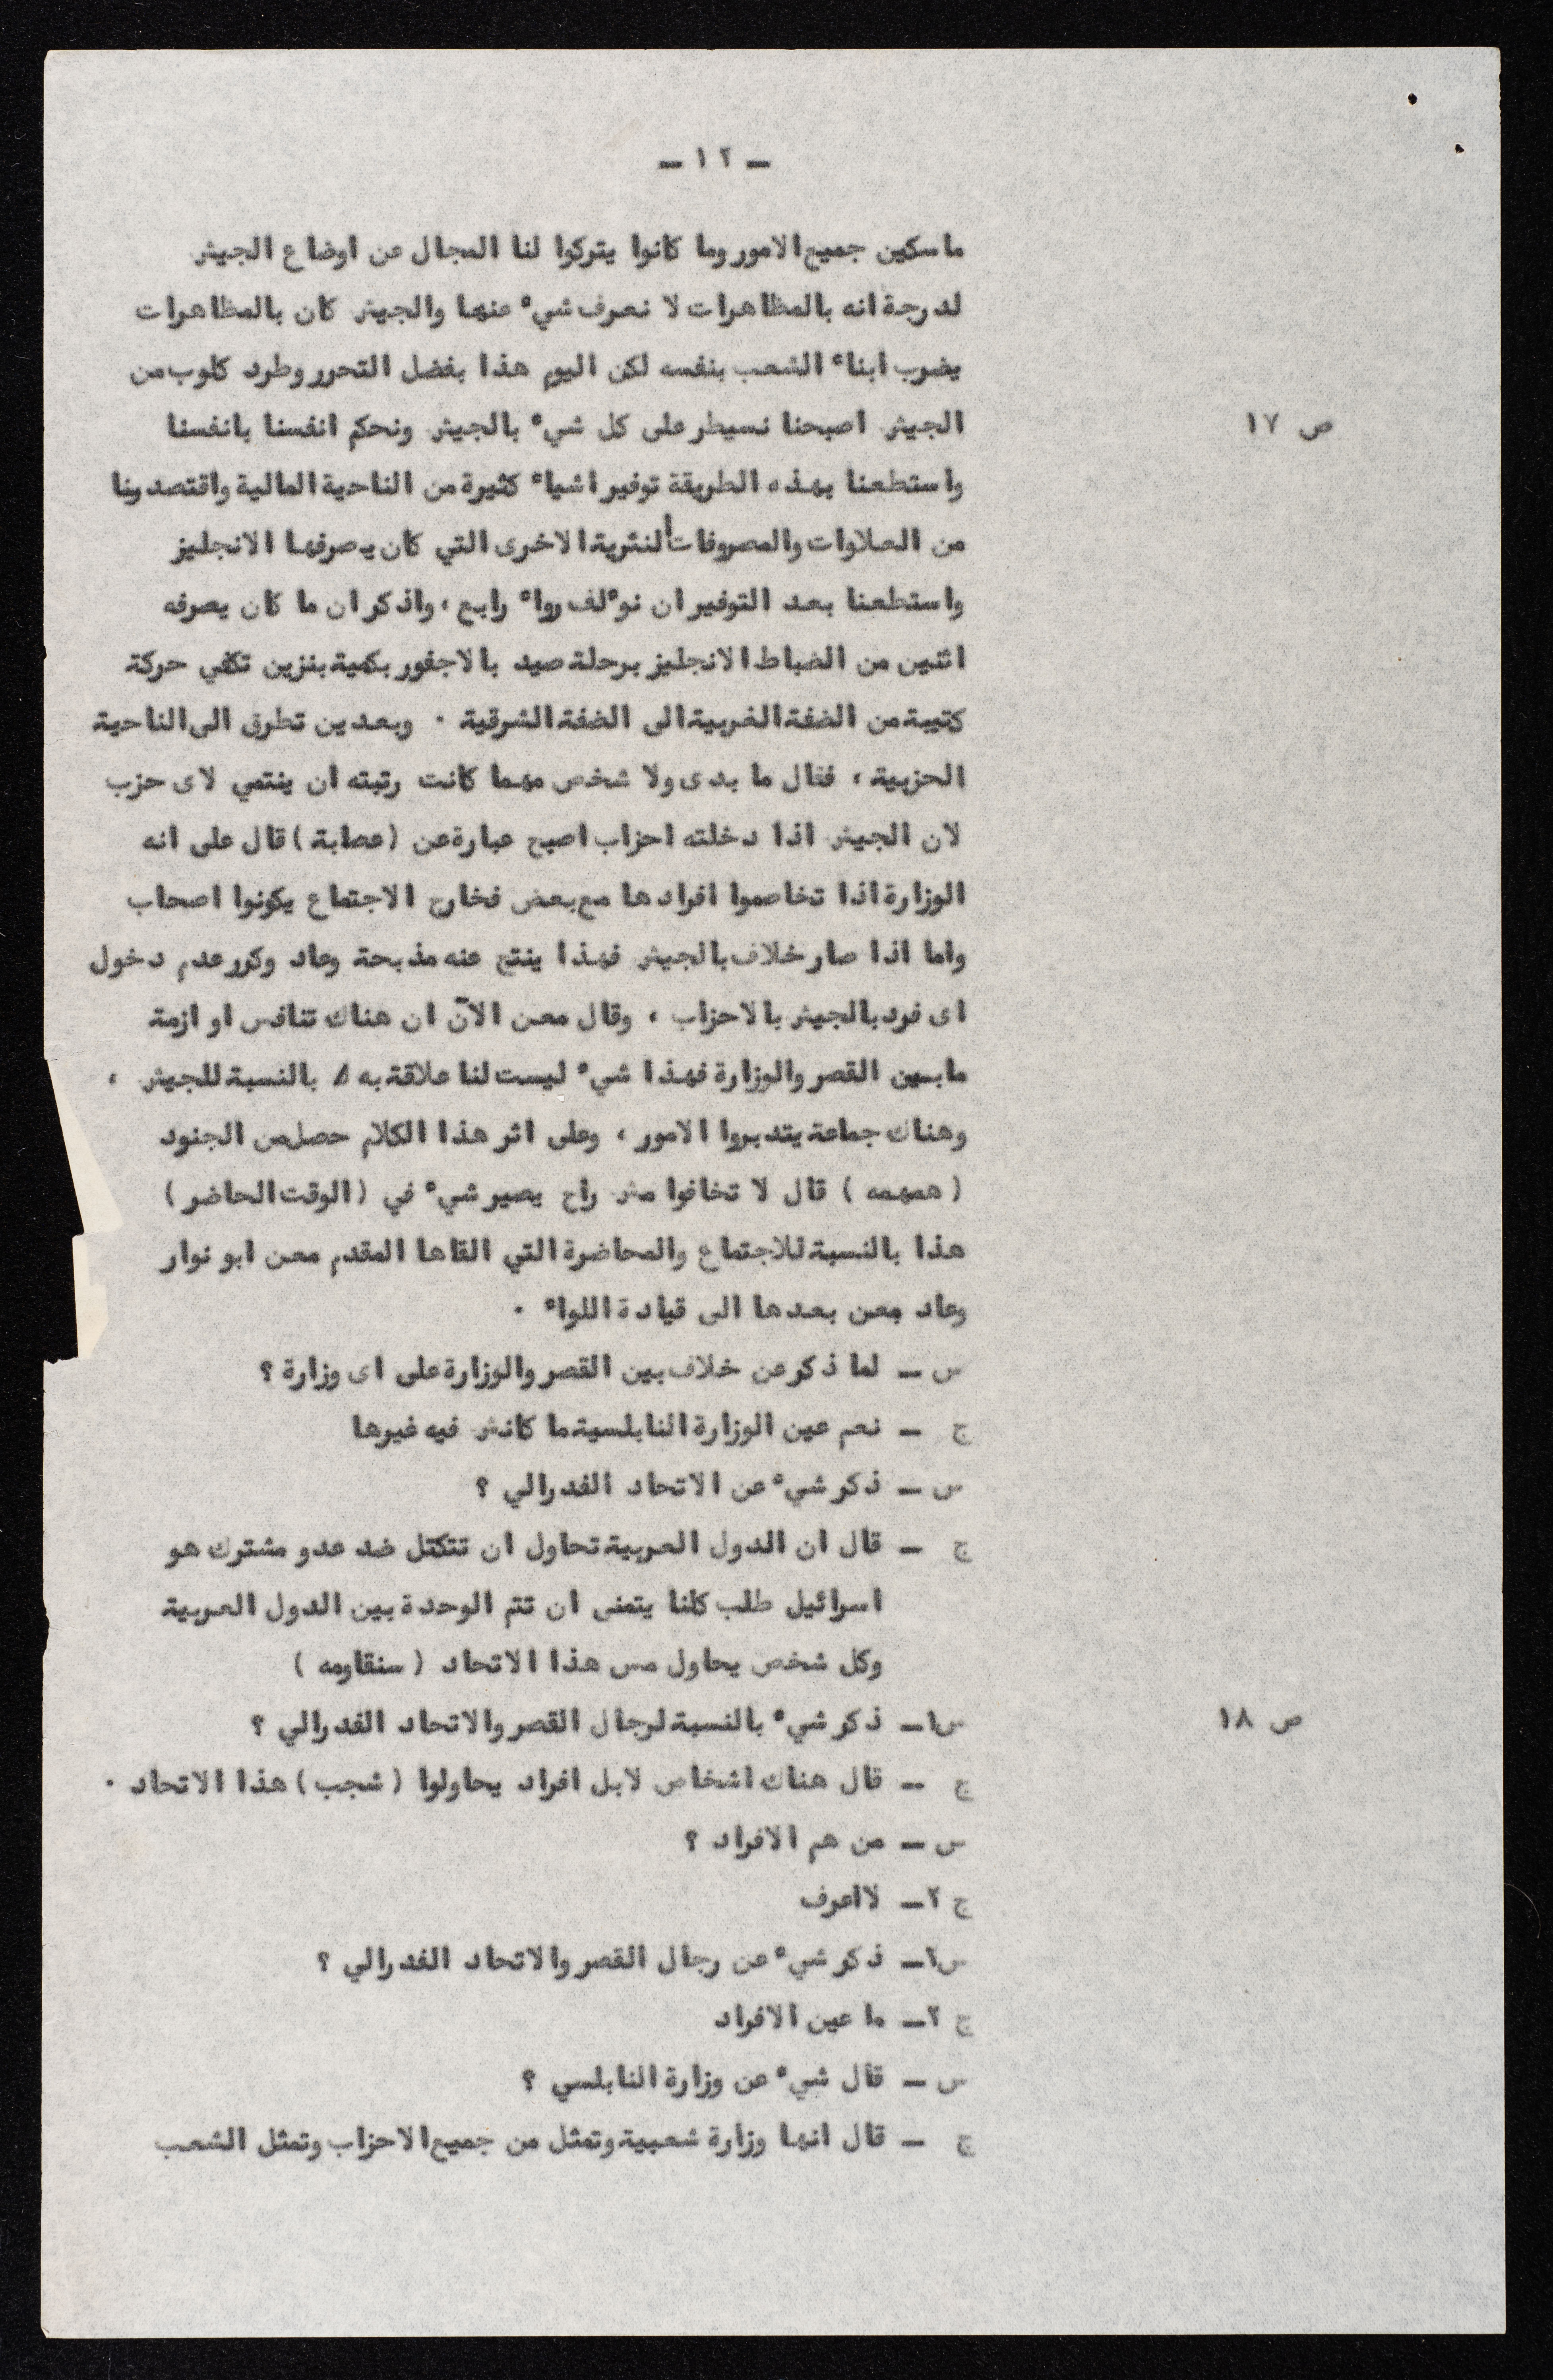 ـ ١٢ ـ
ماسكين جميع الامور وما كانوا يتركوا لنا المجال عن اوضاع الجيش
لدرجة انه بالمظاهرات لا نعرف شيء عنها والجيش كان بالمظاهرات
يضرب ابناء الشعب بنفسه لكن اليوم هذا بفضل التحرر وطرد كلوب من
ص ١٧ الجيش اصبحنا نسيطر على كل شيء بالجيش ونحكم انفسنا بانفسنا
واستطعنا بهذه الطريقة توفير اشياء كثيرة من الناحية المالية واقتصدينا
من العلاوات والمصروفات النثرية الاخرى التي كان يصرفها الانجليز
واستطعنا بعد التوفير ان نوءلف رواء رابع ، واذكر ان ما كان يصرفه
اثنين من الضباط الانجليز برحلة صيد بالاجفور بكمية بنزين تكفي حركة
كتيبة من الضفة الغربية الى الضفة الشرقية . وبعدين تطرق الى الناحية
الحزبية ، فقال ما بدى ولا شخص مهما كانت رتبته ان ينتمي لاى حزب
لان الجيش اذا دخلته احزاب اصبح عبارة عن (عصابة) قال على انه
الوزارة اذا تخاصموا افرادها مع بعض فخارج الاجتماع يكونوا اصحاب
واما اذا صار خلاف بالجيش فهذا ينتج عنه مذبحة وعاد وكرر عدم دخول
اى فرد بالجيش بالاحزاب ، وقال معن الآن ان هناك تنافس او ازمة
مابين القصر والوزارة فهذا شيء ليست لنا علاقة به بالنسبة للجيش ،
وهناك جماعة يتدبروا الامور ، وعلى اثر هذا الكلام حصل من الجنود
( همهمه ) قال لا تخافوا مش راح يصير شيء في (الوقت الحاضر)
هذا بالنسبة للاجتماع والمحاضرة التي القاها المقدم معن ابو نوار
وعاد معن بعدها الى قيادة اللواء .
س ـ لما ذكر عن خلاف بين القصر والوزارة على اى وزارة ؟
ج ـ نعم عين الوزارة النابلسية ما كانش فيه غيرها
س ـ ذكر شيء عن الاتحاد الفدرالي ؟
ج ـ قال ان الدول العربية تحاول ان تتكتل ضد عدو مشترك هو
اسرائيل طلب كلنا يتمنى ان تتم الوحدة بين الدول العربية
وكل شخص يحاول مس هذا الاتحاد ( سنقاومه )
ص ١٨ س١ـ ذكر شيء بالنسبة لرجال القصر والاتحاد الفدرالي ؟
ج ـ قال هناك اشخاص لابل افراد يحاولوا (شجب) هذا الاتحاد .
س ـ من هم الافراد ؟
ج ٢ـ لااعرف
س١ـ ذكر شيء عن رجال القصر والاتحاد الفدرالي ؟
ج ٢ـ ما عين الافراد
س ـ قال شيء عن وزارة النابلسي ؟
ج ـ قال انها وزارة شعبية وتمثل من جميع الاحزاب وتمثل الشعب